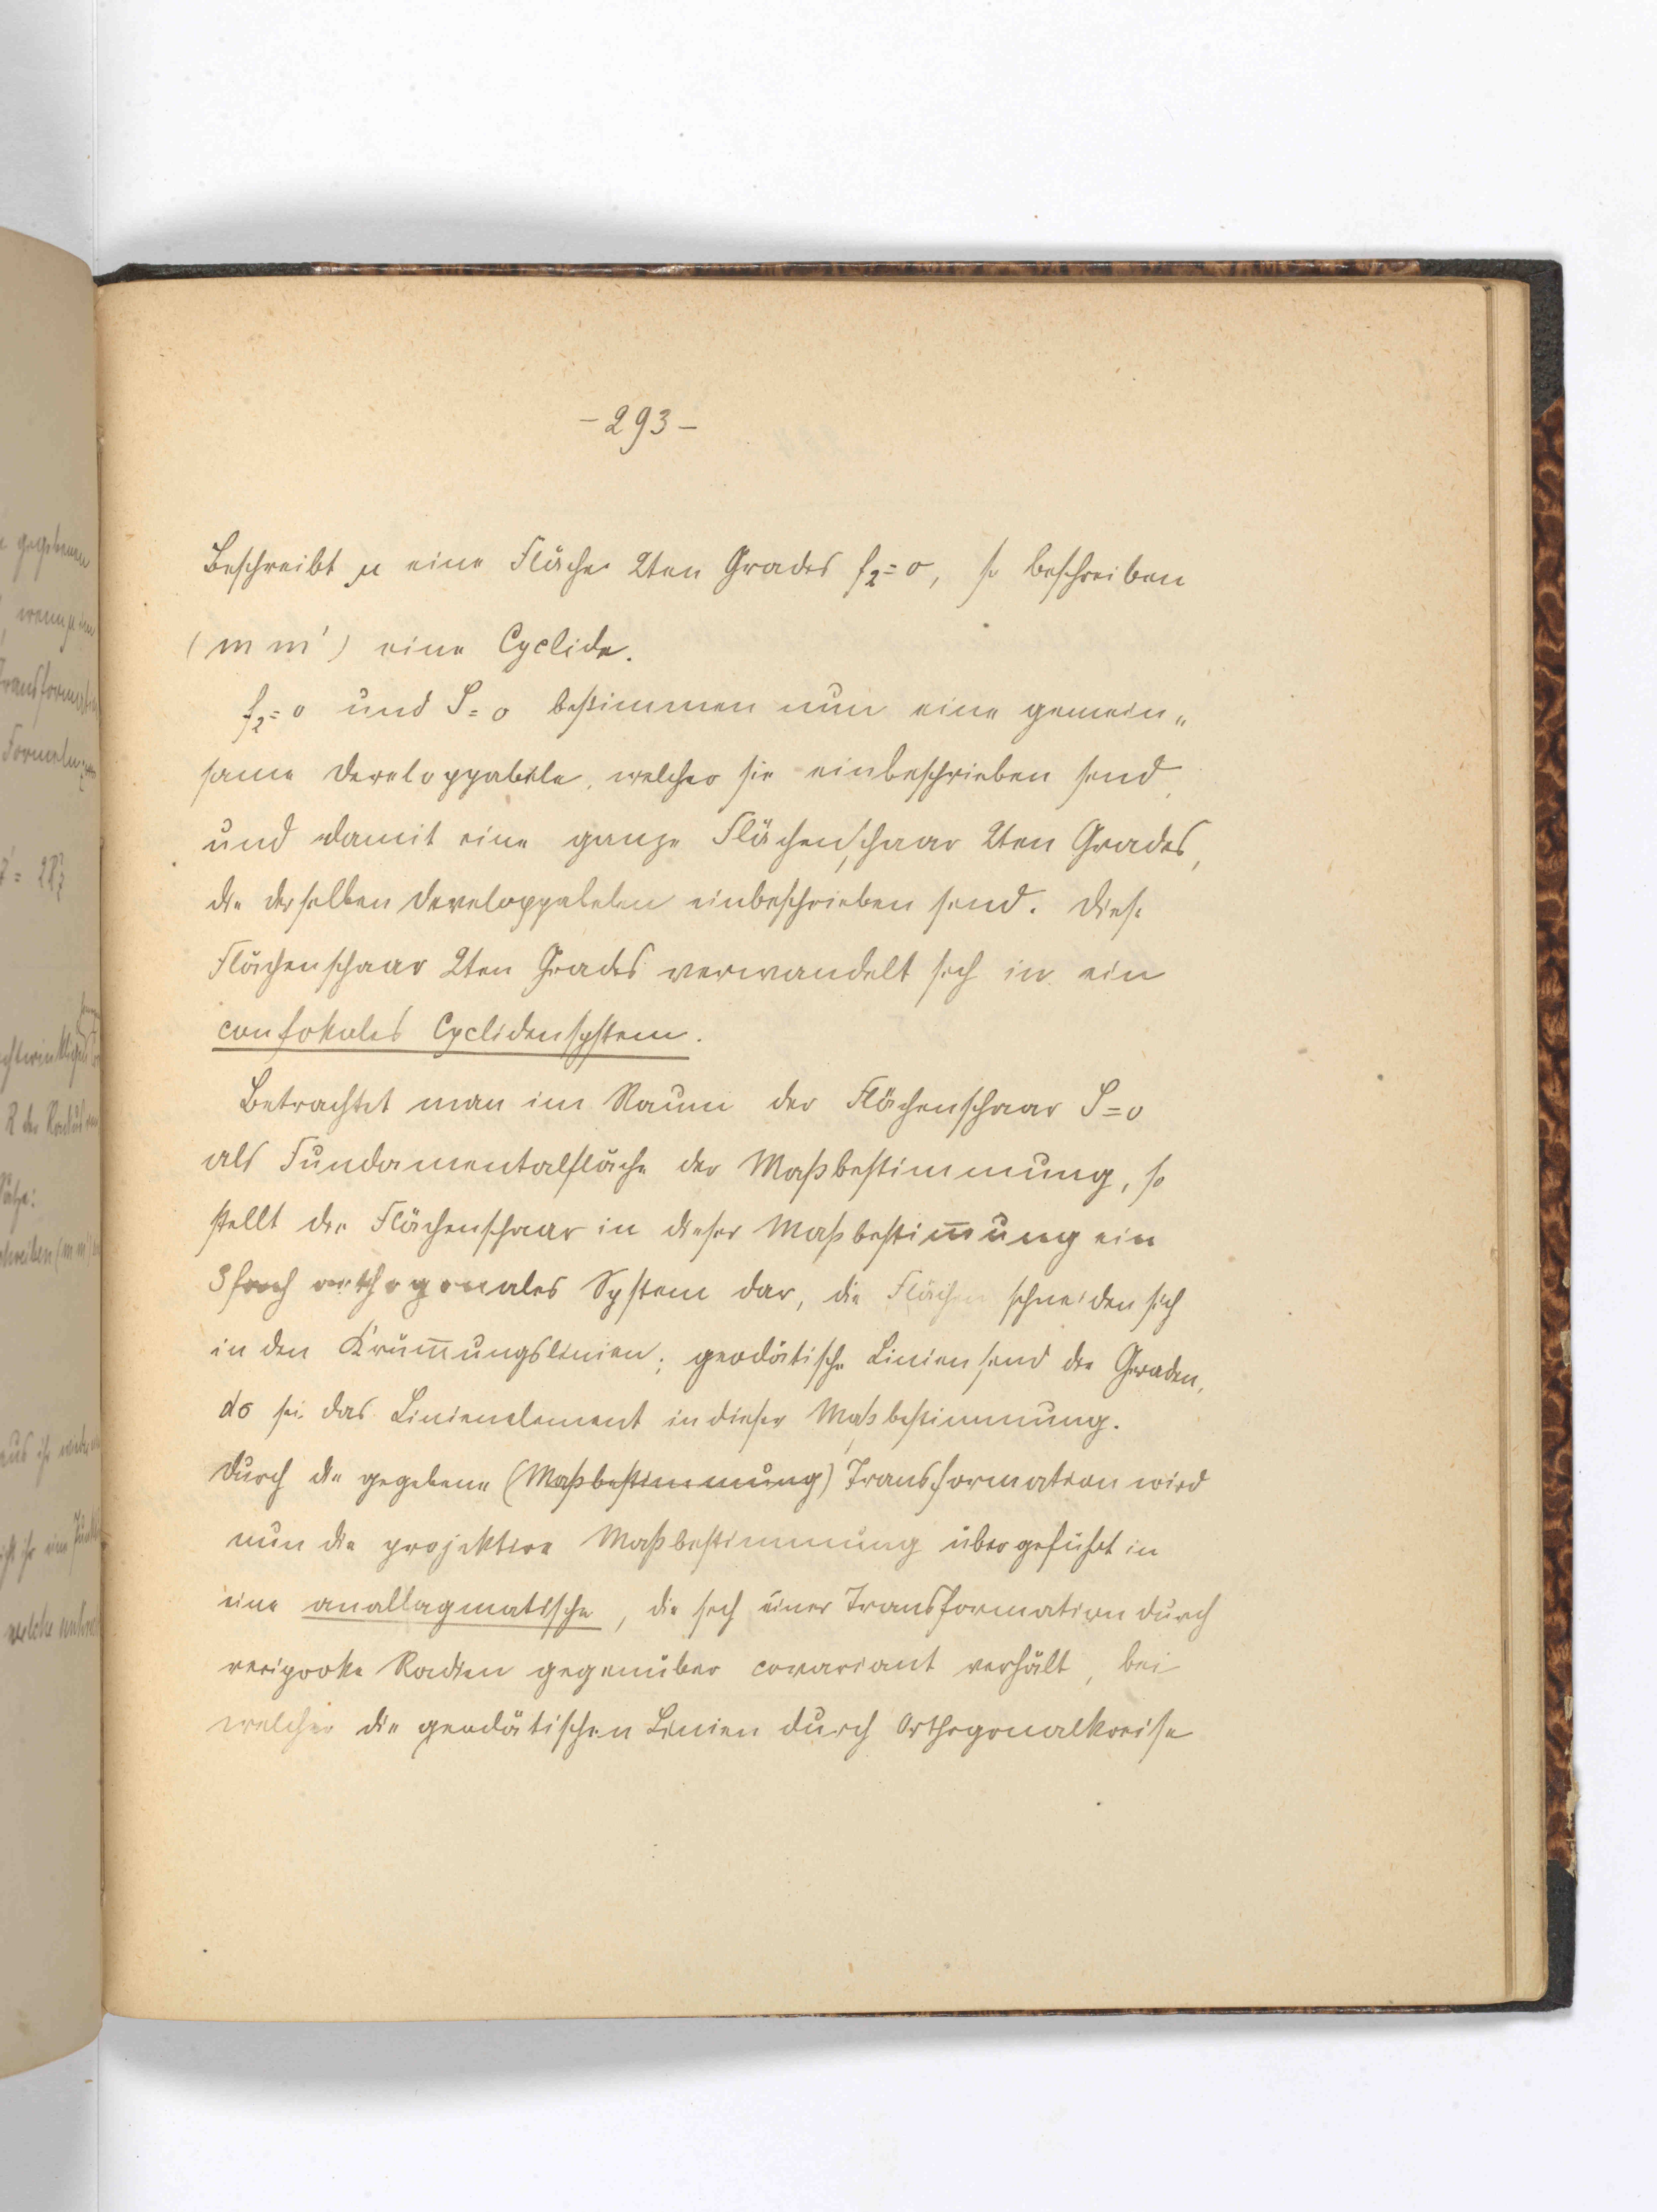 -293-
Beschreibt μ eine Fläche 2ten Grades f₂=0, so beschreiben
(m m') eine Cyclide.
f₂=0 und S=0 bestimmen nun eine gemein„
same Developpabele, welcher sie einbeschrieben sind,
und damit eine ganze Flächenschaar 2ten Grades,
die derselben Developpabelen einbeschrieben sind. Diese
Flächenschaar 2ten Grades verwandelt sich in ein
confokales Cyclidensystem.
Betrachtet man im Raum der Flächenschaar S=0
als Fundamentalfläche der Maßbestimmung, so
stellt die Flächenschaar in dieser Maßbestim̅ung ein
3fach orthogonales System dar, die Flächen schneiden sich
in den Krüm̅ungslinien; geodätische Linien sind die Geraden,
dσ sei das Linienelement in dieser Maßbestimmung.
Durch die gegebene (Maßbestimmung) Transformation wird
nun die projektive Maßbestimmung übergeführt in
eine anallagmatische, die sich einer Transformation durch
reciproke Radien gegenüber covariant verhält, bei
welcher die geodätischen Linien durch Orthogonalkreise
gegebenen
wenn μ
Transformation
Formeln
R der Radius
Sätze:
schreiben (m m')
aus ihr
ist ihr eine
welche